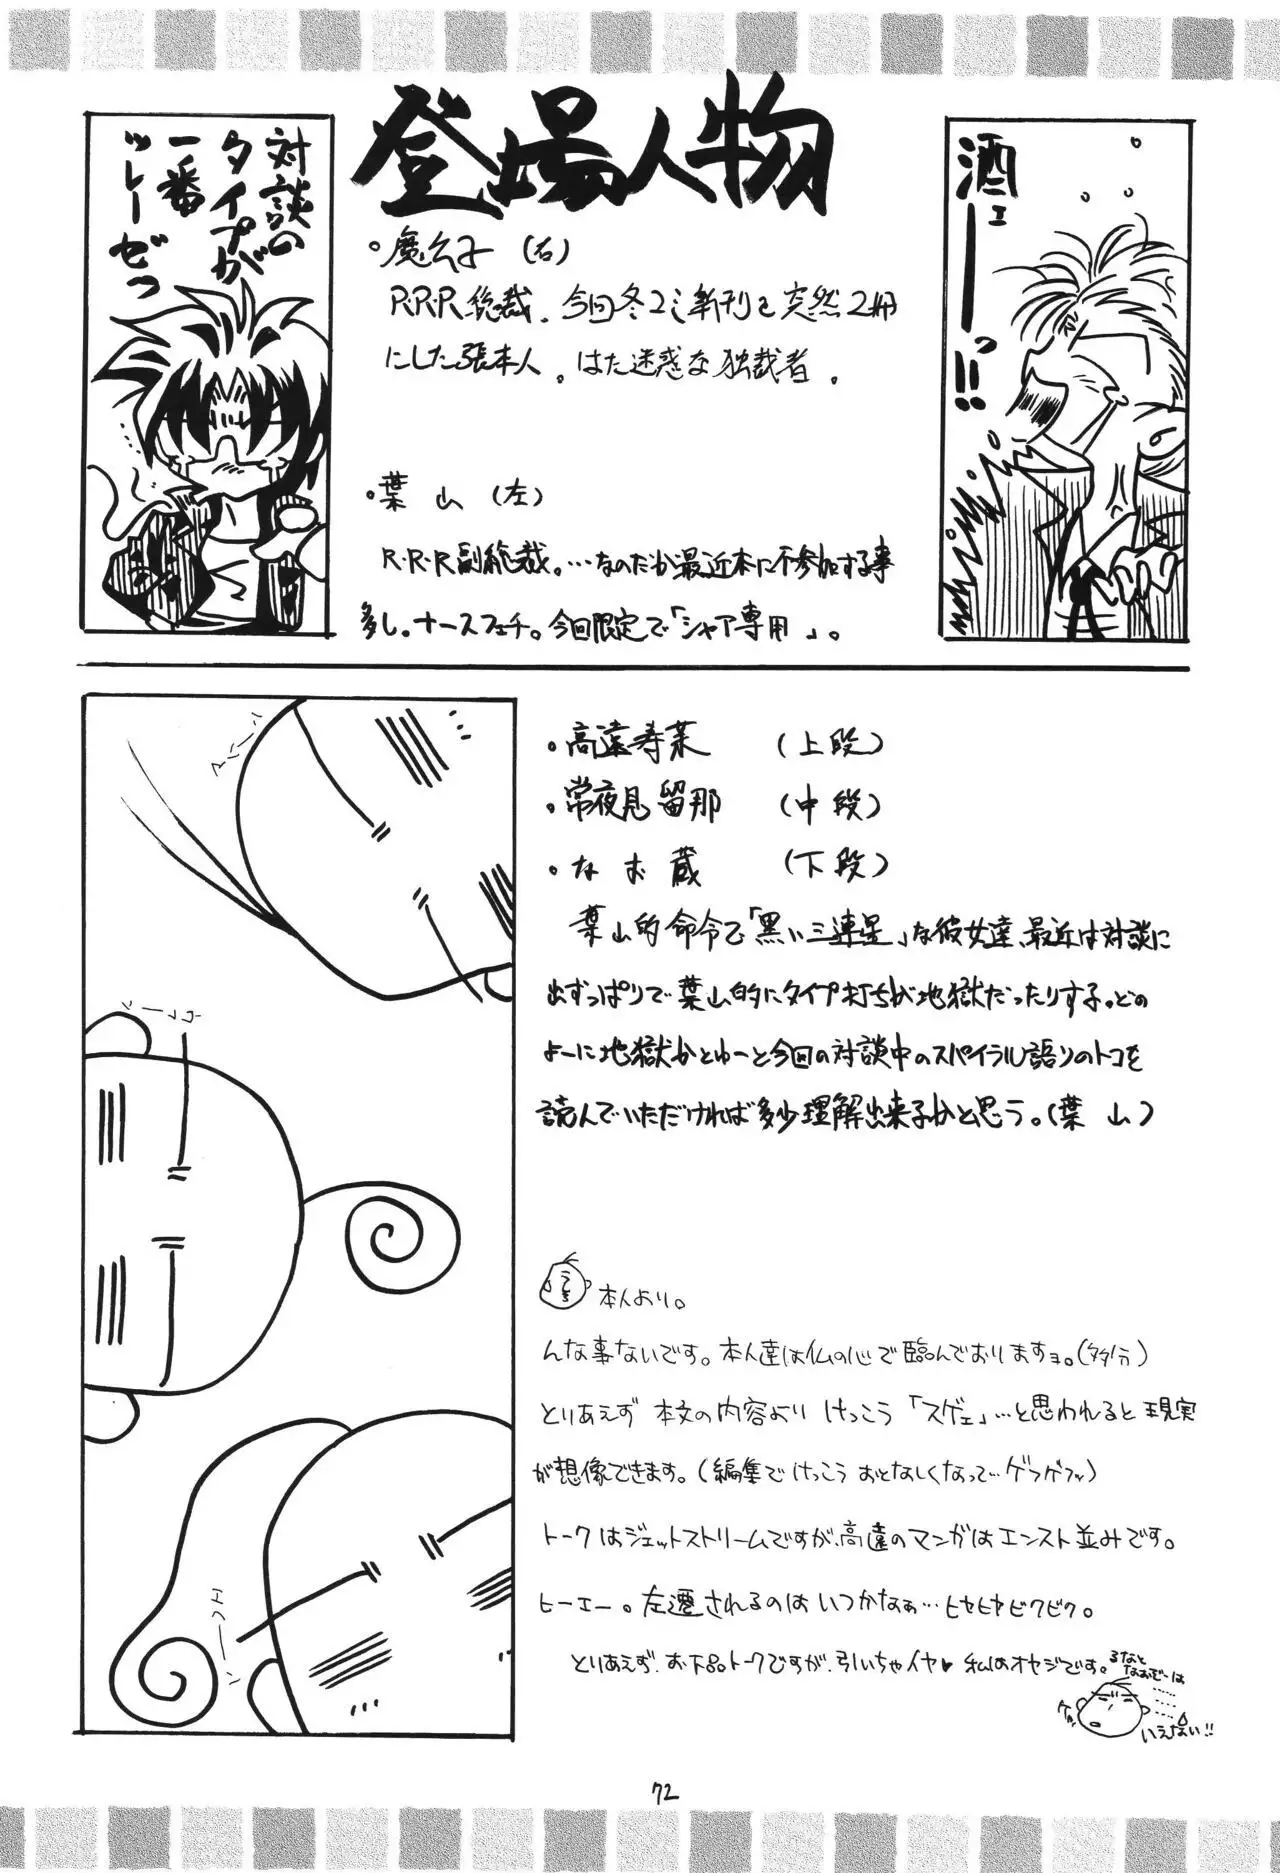 登場人物
酒ェーーーっ!!
対談の
タイプが
一番
ツレーぜっ
。魔公子(右)
R・R・R総裁、今回冬コミ新刊を突然2冊
にした張本人。はた迷惑な独裁者。
。葉山(左)
R・R・R副総裁。…なのだが最近本に不参加する事
多し。ナースフェチ。今回限定で「シャア専用」。
。高遠寿葉 (上段)
。常夜見留那 (中段)
。なお蔵 (下段)
葉山的命令で「黒い三連星」な彼女達、最近は対談に
出ずっぱりで葉山的にタイプ打ちが地獄だったりする。どの
よーに地獄かとゆーと今回の対談中のスパイラル語りのトコを
読んでいただければ多少理解出来るかと思う。(葉山)
本人より。
んな事ないです。本人達は仏の心で臨んでおりますョ。(多分)
とりあえず本文の内容より けっこう「スゲェ」…と思われると現実
が想像できます。(編集でけっこう おとなしくなって…ゲフゲフッ)
トークはジェットストリームですが、高遠のマンガはエンスト並みです。
ヒーエー。左遷されるのはいつかなぁ…ヒヤヒヤビクビク。
とりあえず、お下品トークですが、引いちゃイヤ♥ 私はオヤジです。
るなと
なおぞーは
……
いえない!!
72